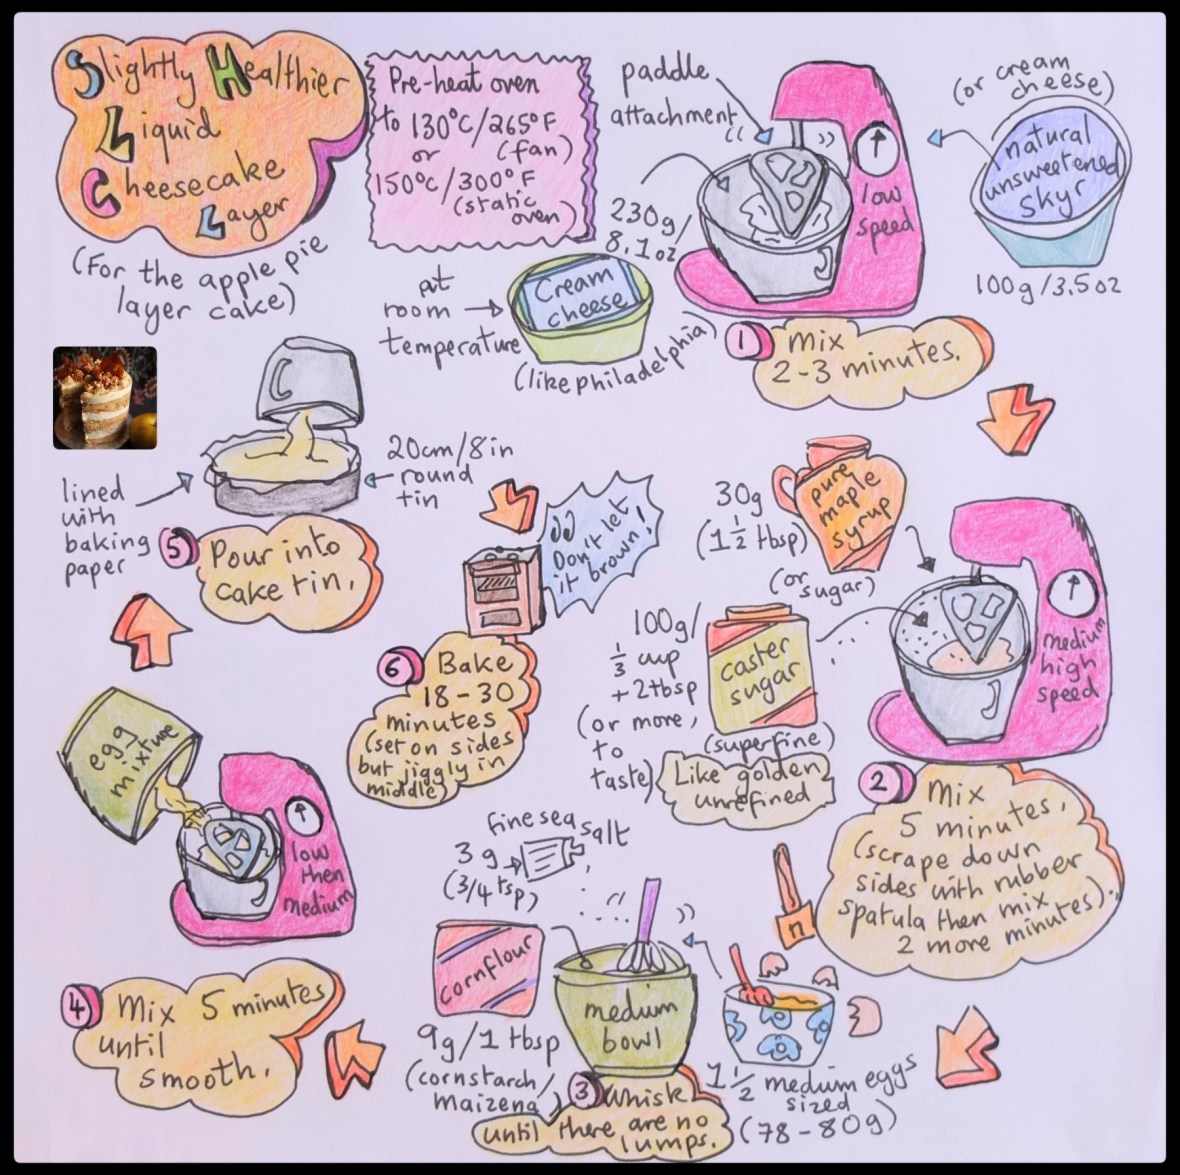 Slightly Healthier
Liquid
Cheesecake
Layer
(For the apple pie
layer cake)
Pre-heat oven
to 130°C/265°F
or (fan)
150°C/300°F
(static
oven)
paddle
attachment
low
speed
(or cream
cheese)
natural
unsweetened
skyr
100g/3.5oz
230g/
8.1oz
at
room
temperature
Cream
cheese
(like philadelphia)
1 Mix
2-3 minutes.
30g
(1 1/2 tbsp)
pure
maple
syrup
(or
sugar)
100g/
1/3 cup
+ 2tbsp
(or more,
to
taste)
caster
sugar
(superfine)
Like golden
unrefined
medium
high
speed
2 Mix
5 minutes,
(scrape down
sides with rubber
spatula then mix
2 more minutes).
fine sea salt
3g
(3/4 tsp)
cornflour
9g/1 tbsp
(cornstarch/
maizena)
medium
bowl
1 1/2 medium eggs
sized
(78-80g)
3 Whisk
until there are no
lumps.
egg
mixture
low
then
medium
4 Mix 5 minutes
until
smooth.
lined
with
baking
paper
20cm/8in
round
tin
5 Pour into
cake tin.
Don't let
it brown!
6 Bake
18-30
minutes
(set on sides
but jiggly in
middle)